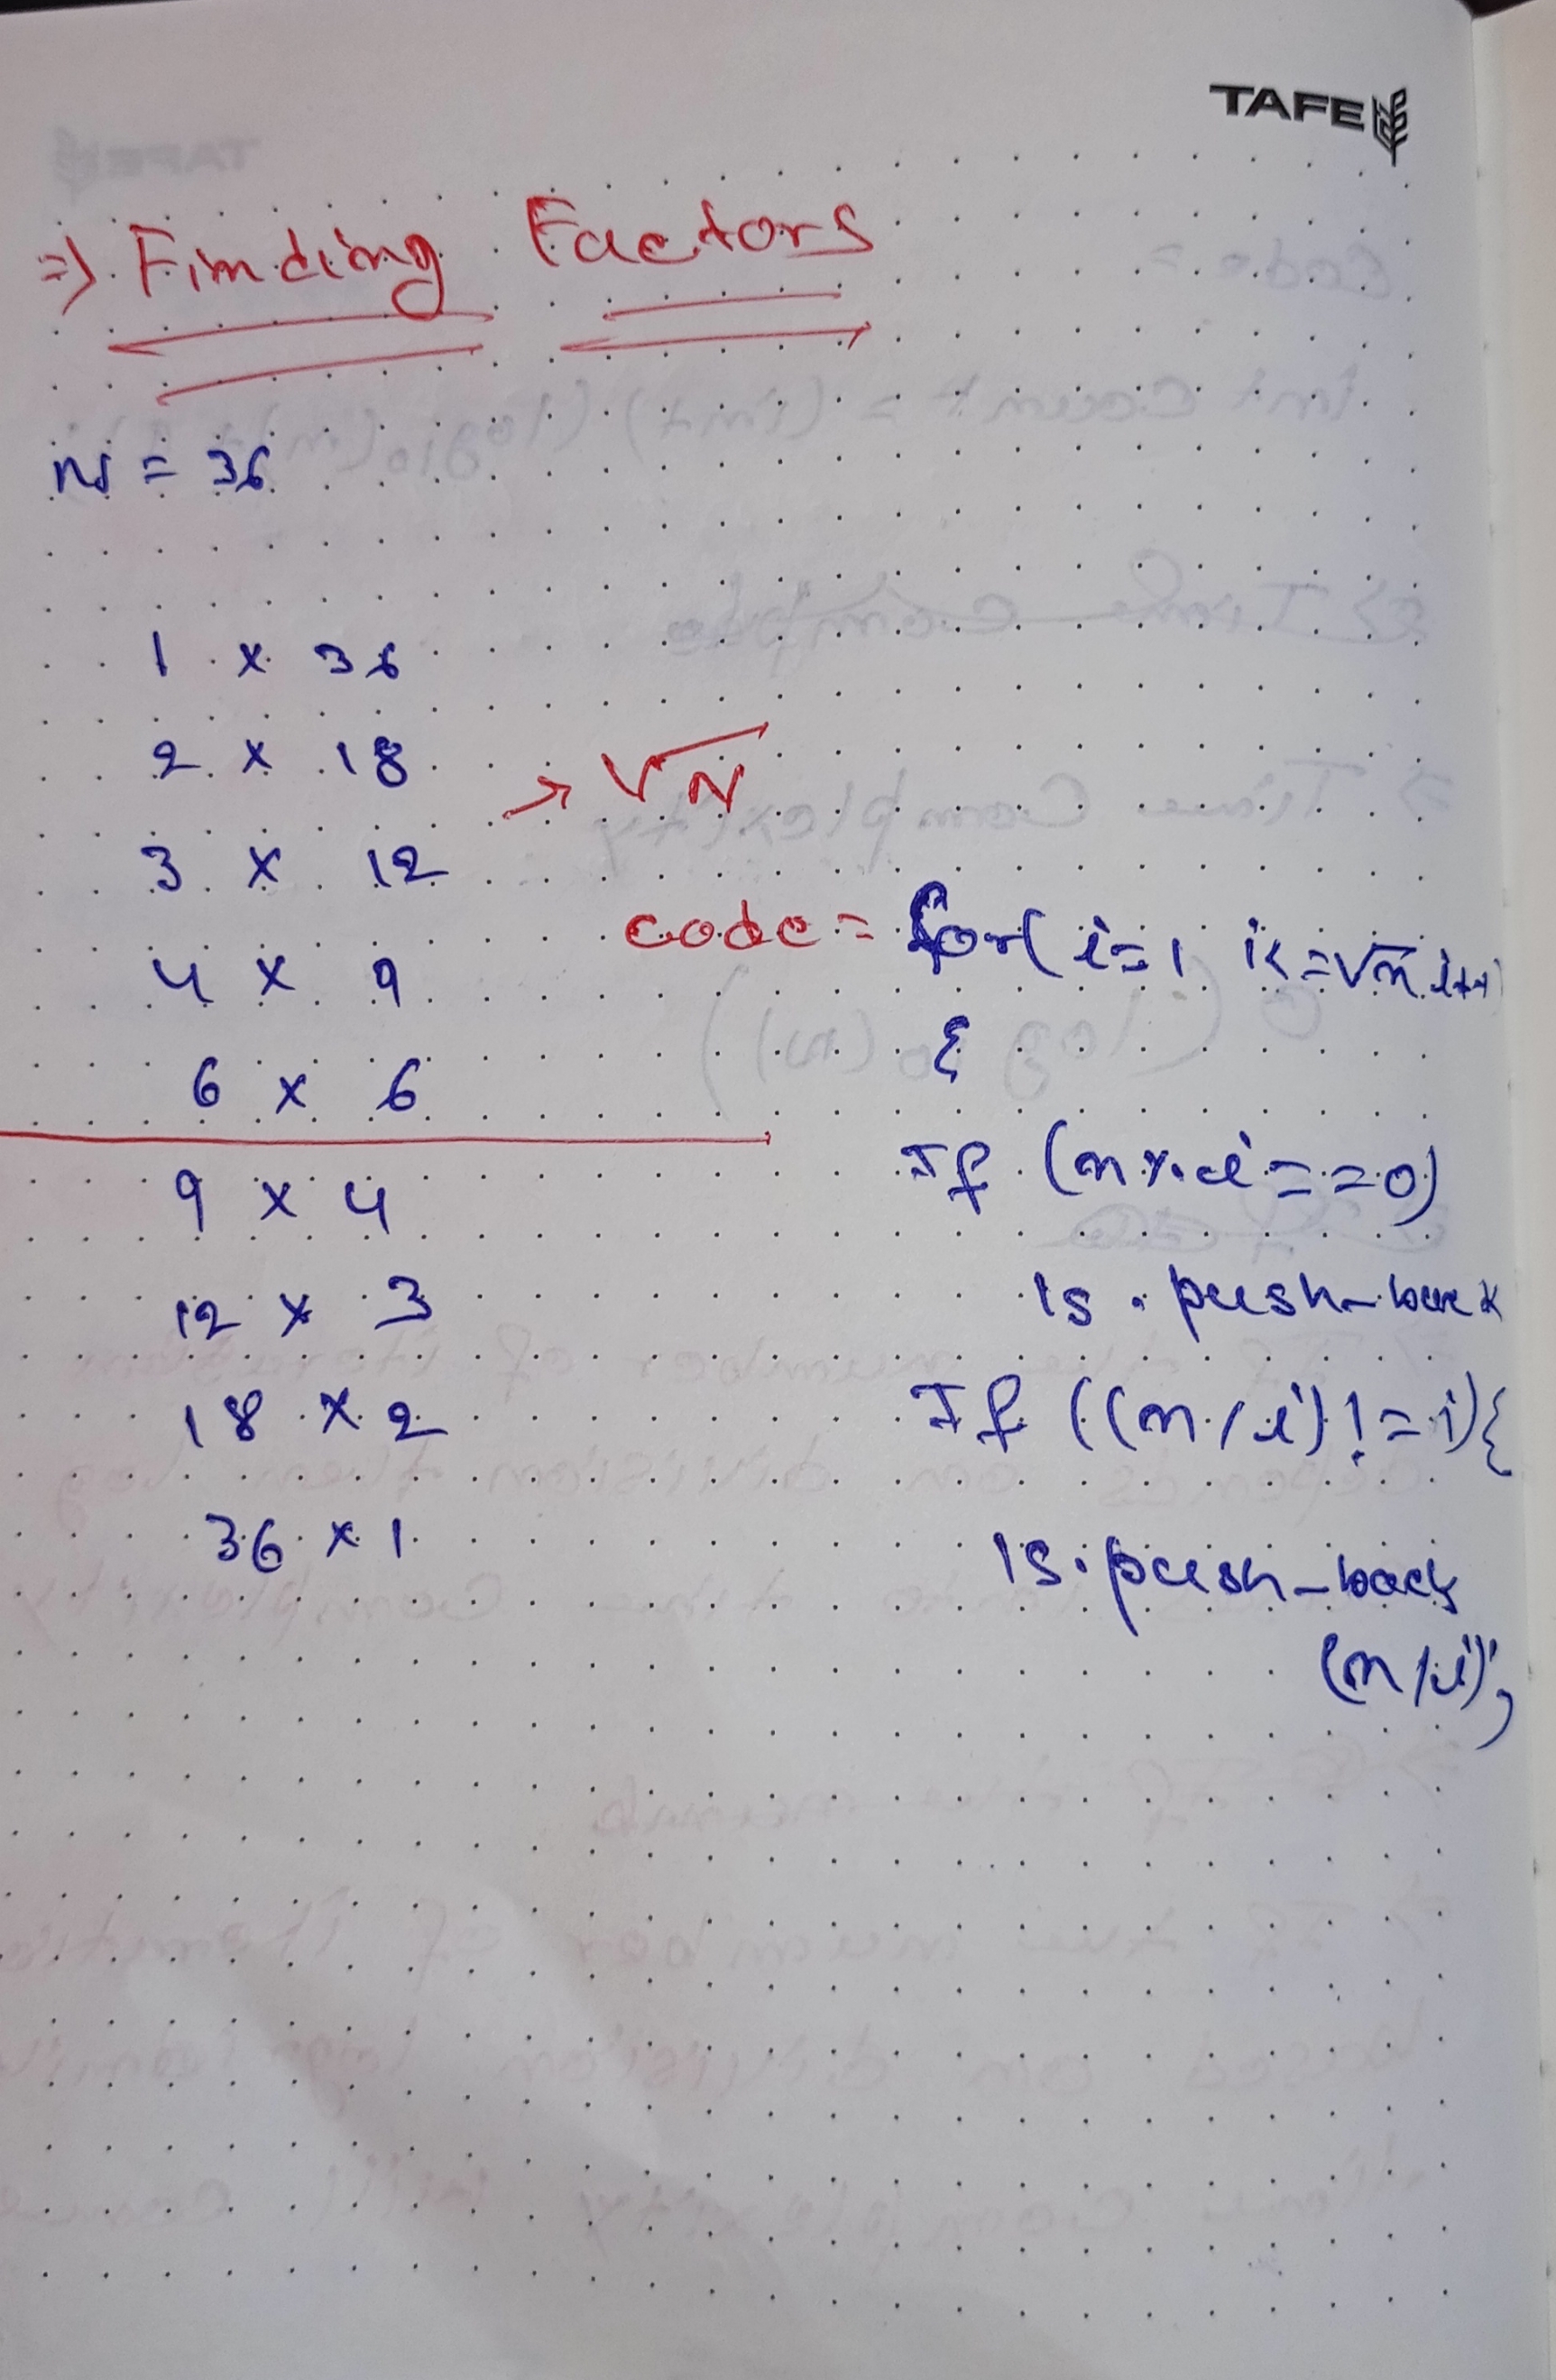 TAFE
=> Finding Factors
N = 36
1 x 36
2 x 18
3 x 12
4 x 9
6 x 6
9 x 4
12 x 3
18 x 2
36 x 1
→ √N
code = for( i=1 i<=√n i++)
{
If (n % i == 0)
ls . push_back
If ((n / i) != i) {
ls . push_back
(n / i);